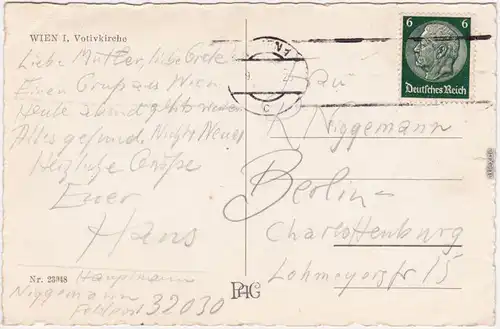 WIEN I. Votivkirche
Liebe Mutter, liebe Grete!
Einen Gruß aus Wien
Heute abend geht's wieder
Alles gesund. Nichts Neues
Herzliche Grüße
Euer
Hans
Nr. 23948 Hauptmann
Niggemann
Feldpost 32030
PAG
WIEN 1
6 6
Deutsches Reich
Frau
Niggemann
Berlin-
Charlottenburg
Lohmeyerstr 15